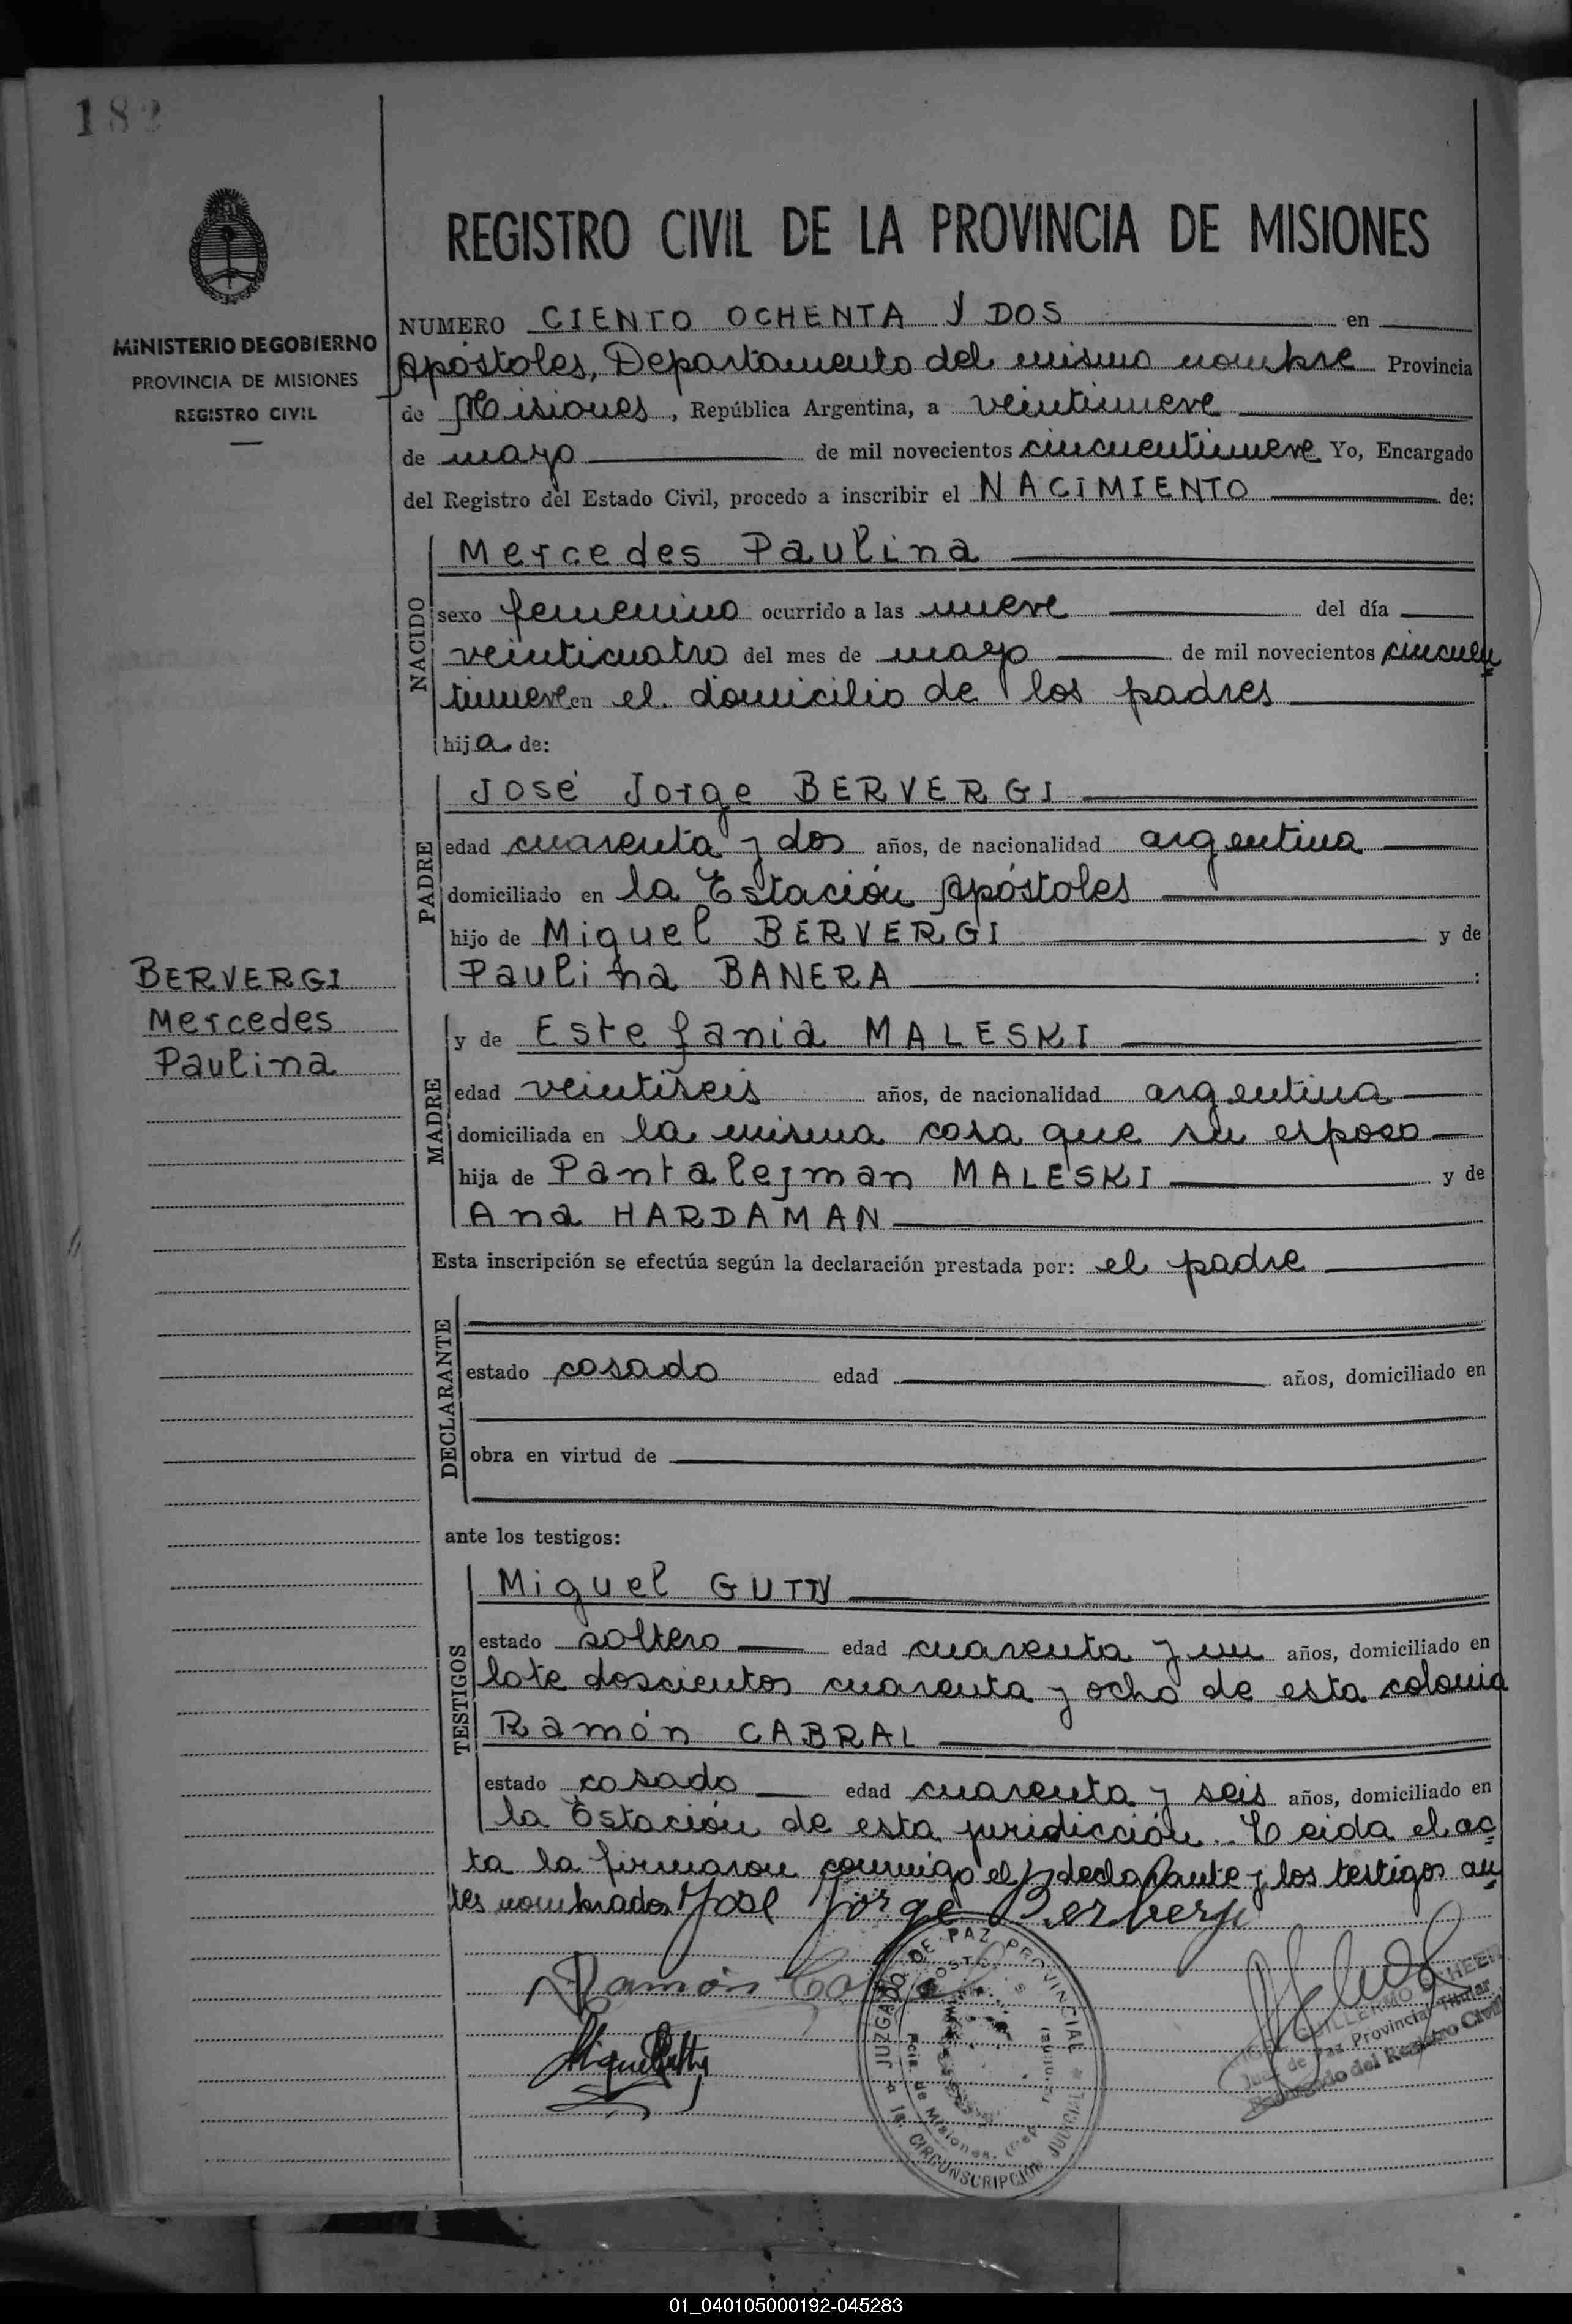 182
MINISTERIO DE GOBIERNO
PROVINCIA DE MISIONES
REGISTRO CIVIL
REGISTRO CIVIL DE LA PROVINCIA DE MISIONES
NUMERO CIENTO OCHENTA Y DOS en
Apóstoles, Departamento del mismo nombre Provincia
de Misiones, República Argentina, a veintinueve
de mayo de mil novecientos cincuentinueve Yo, Encargado
del Registro del Estado Civil, procedo a inscribir el NACIMIENTO de:
NACIDO
Mercedes Paulina
sexo femenino ocurrido a las nueve del día
veinticuatro del mes de mayo de mil novecientos cincuen
tinueve en el domicilio de los padres
hija de:
PADRE
José Jorge BERVERGI
edad cuarenta y dos años, de nacionalidad argentina
domiciliado en la Estación Apóstoles
hijo de Miguel BERVERGI y de
Paulina BANERA :
BERVERGI
Mercedes
Paulina
MADRE
y de Estefania MALESKI
edad veintiseis años, de nacionalidad argentina
domiciliada en la misma casa que su esposo
hija de Pantalejman MALESKI y de
Ana HARDAMAN
Esta inscripción se efectúa según la declaración prestada por: el padre
DECLARANTE
estado casado edad años, domiciliado en
obra en virtud de
ante los testigos:
TESTIGOS
Miguel
estado soltero edad cuarenta y un años, domiciliado en
lote doscientos cuarenta y ocho de esta colonia
Ramón CABRAL
estado casado edad cuarenta y seis años, domiciliado en
la Estación de esta juridicción. Leida el ac
ta la firmaron conmigo el declarante y los testigos an
tes nombrados José Jorge Berbergi
Ramón
JUZGADO DE PAZ PROVINCIAL
1a. CIRCUNSCRIPCION JUDICIAL
Pcia. de Misiones.
GUILLERMO
Juez de Paz Provincial Titular
Encargado del Registro Civil
01_040105000192-045283